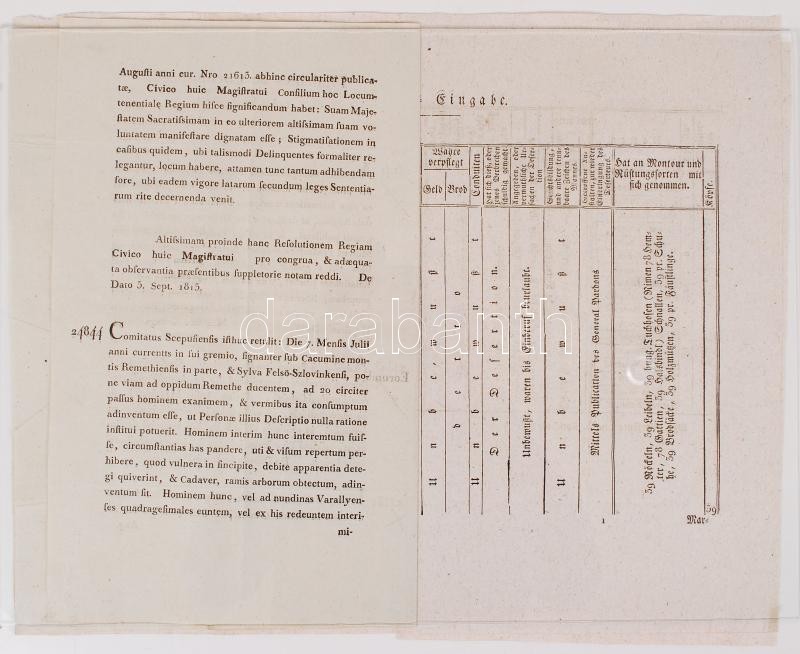 Auguſti anni cur. Nro 21615. abhinc circulariter publica-
tæ, Civico huic Magiſtratui Conſilium hoc Locum-
tenentiale Regium hiſce ſignificandum habet: Suam Maje-
ſtatem Sacratiſſimam in eo ulteriorem altiſſimam ſuam vo-
luntatem manifeſtare dignatam eſſe; Stigmatiſationem in
caſibus quidem, ubi talismodi Delinquentes formaliter re-
legantur, locum habere, attamen tunc tantum adhibendam
fore, ubi eadem vigore latarum ſecundum leges Sententia-
rum rite decernenda venit.
Altiſſimam proinde hanc Reſolutionem Regiam
Civico huic Magiſtratui pro congrua, & adæqua-
ta obſervantia præſentibus ſuppletorie notam reddi. De
Dato 5. Sept. 1815.
24844
Comitatus Scepuſienſis iſthuc retulit: Die 7. Menſis Julii
anni currentis in ſui gremio, ſignanter ſub Cacumine mon-
tis Remethienſis in parte, & Sylva Felső-Szlovinkenſi, po-
ne viam ad oppidum Remethe ducentem, ad 20 circiter
paſſus hominem exanimem, & vermibus ita conſumptum
adinventum eſſe, ut Perſonæ illius Deſcriptio nulla ratione
inſtitui potuerit. Hominem interim hunc interemtum fuiſ-
ſe, circumſtantias has pandere, uti & viſum repertum per-
hibere, quod vulnera in ſincipite, debite apparentia dete-
gi quiverint, & Cadaver, ramis arborum obtectum, adin-
ventum ſit. Hominem hunc, vel ad nundinas Varallyen-
ſes quadrageſimales euntem, vel ex his redeuntem interi-
mi-
Eingabe.
Wahre
verpflegt
Geld
Brod
Conduiten
Hat ſich dieß, oder
jenes Verbrechen
ſchuldig gemacht
Angegeben, oder
vermuthliche Ur-
ſachen der Deſer-
tion
Geſichtsbildung,
und andere kenn-
bare Zeichen des
Mannes.
Hat an Montour und
Rüſtungsſorten mit
ſich genommen.
Köpfe.
Unbewußt
Unbewußt
Der Deſertion.
Unbewußt, waren bis Einberuf beurlaubt.
Unbewußt
Mittels Publication des General Pardons
59 Röckeln, 59 Leibeln, 59 hung. Tuchhoſen (Riemen 78 Hem-
ter, 78 Gattien, 59 Halsbindl) Schnallen, 59 pr. Schu-
he, 59 Brodſäcke, 59 Holzmützen, 59 pr. Fäuſtlinge.
59
1
Mar-
darabanth